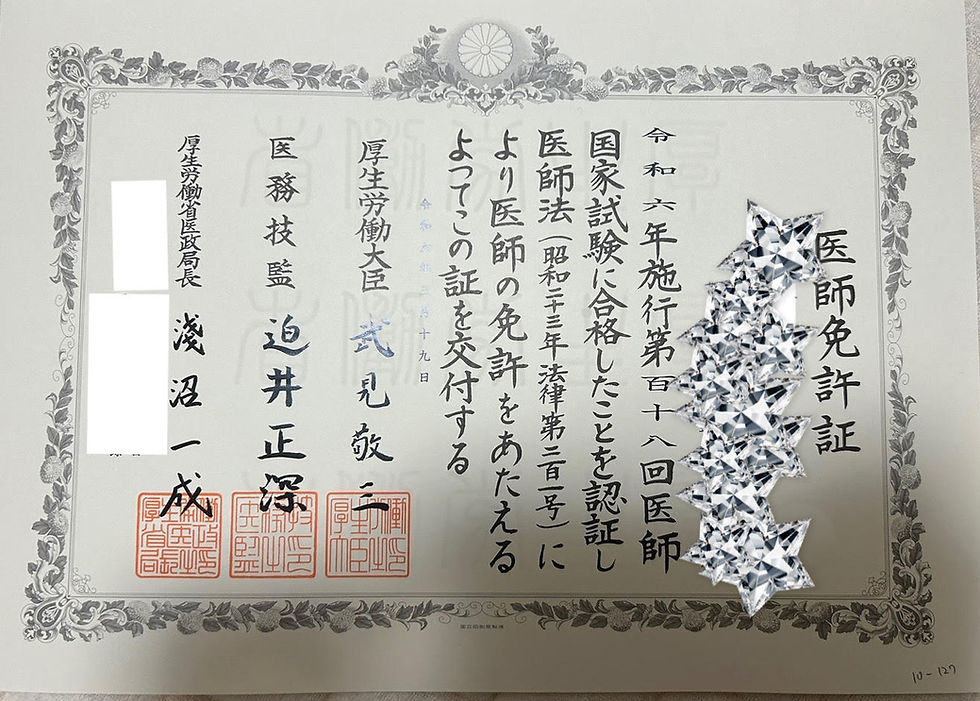 医師免許証
令和六年施行第百十八回医師
国家試験に合格したことを認証し
医師法（昭和二十三年法律第二百一号）に
より医師の免許をあたえる
よってこの証を交付する
令和六年三月十九日
厚生労働大臣 武見敬三
医務技監 迫井正深
厚生労働省医政局長 淺沼一成
国立印刷局製造
10-127